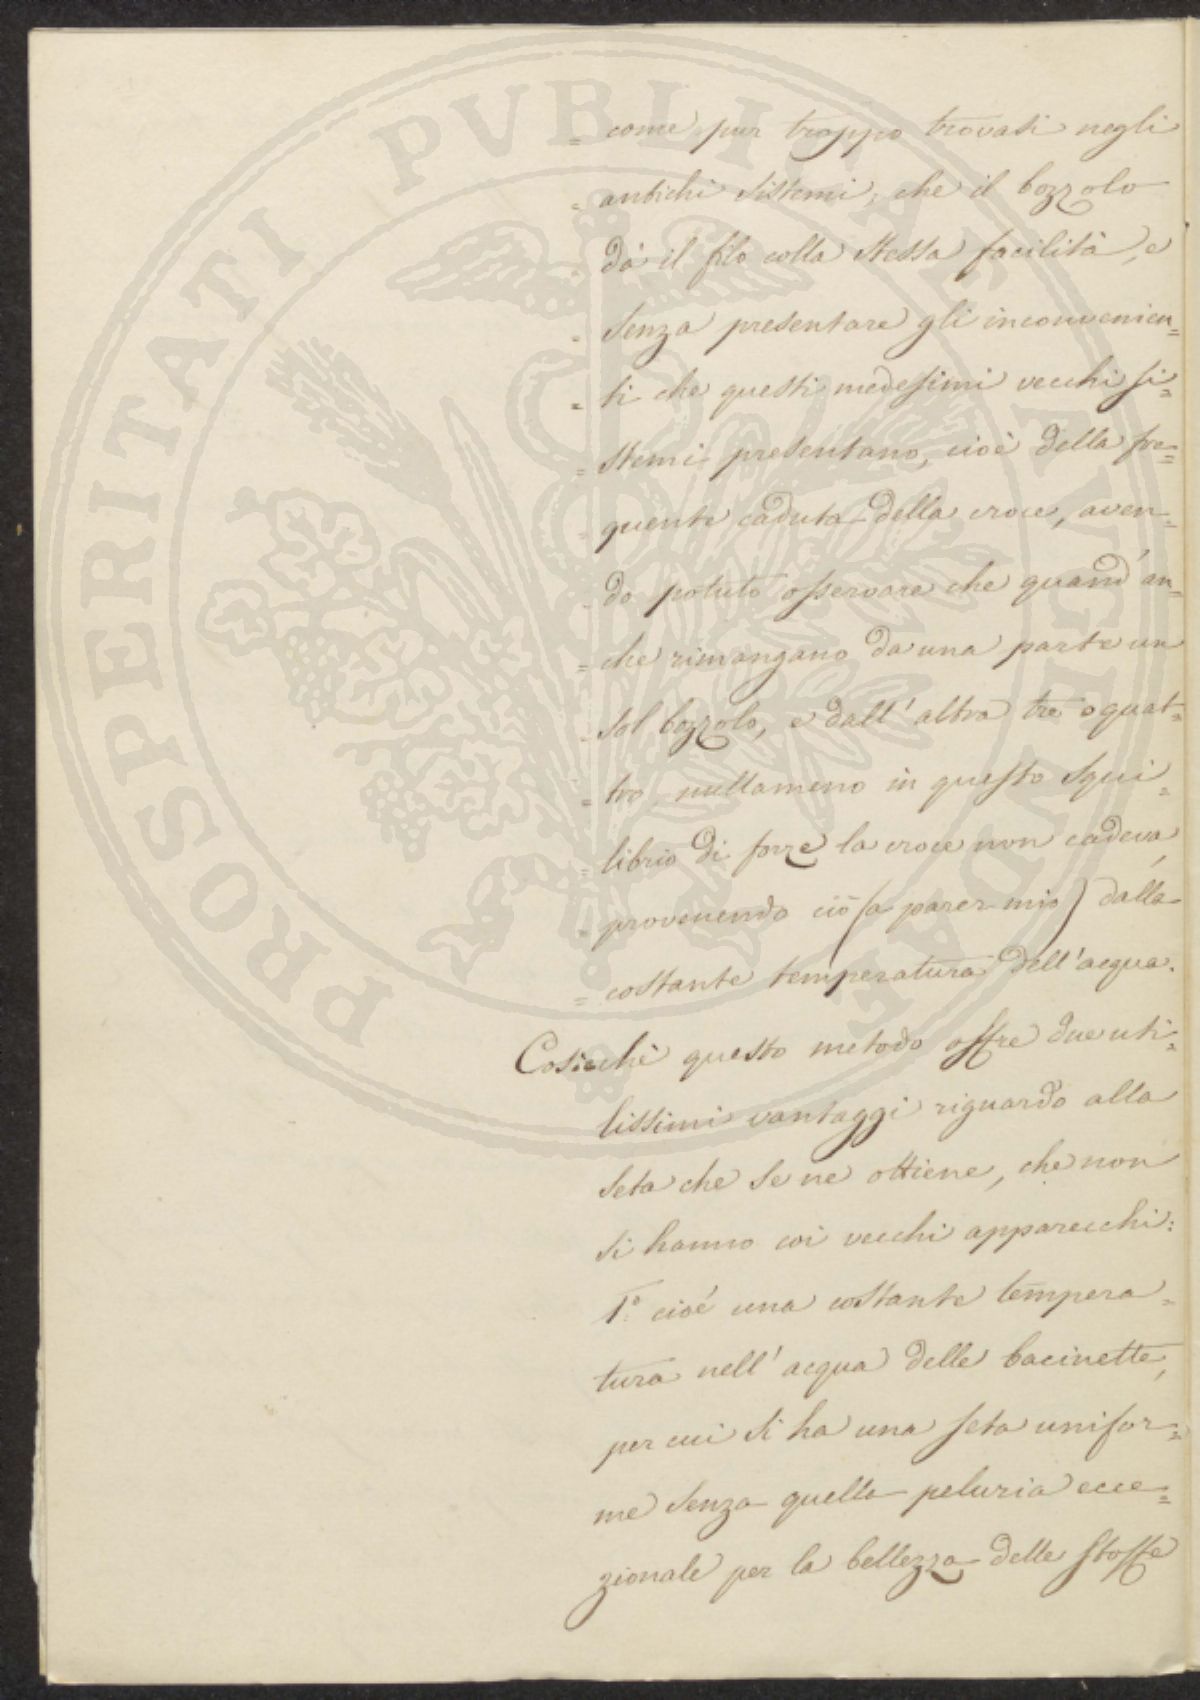 PROSPERITATI PVBLICAE AVGENDAE
= come pur troppo trovasi negli
= antichi sistemi, che il bozzolo
= dà il filo colla stessa facilità, e
= senza presentare gli inconvenien=
= ti che questi medesimi vecchi si=
= stemi presentano, cioè della fre=
= quente caduta della croce, aven=
= do potuto osservare che quand'an=
= che rimangano da una parte un
= sol bozzolo, e dall'altra tre o quat=
= tro, nullameno in questo squi=
= librio di forze la croce non cadeva,
= provenendo ciò (a parer mio) dalla
= costante temperatura dell'acqua.
Cosicchè questo metodo offre due uti=
lissimi vantaggi riguardo alla
seta che se ne ottiene, che non
si hanno coi vecchi apparecchi:
1º cioé una costante tempera=
tura nell'acqua delle bacinette,
per cui si ha una seta unifor=
me senza quella peluria ecce=
zionale per la bellezza delle stoffe